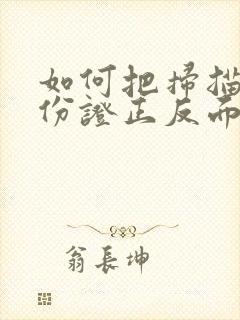 如何把掃描
份證正反面
翁長坤